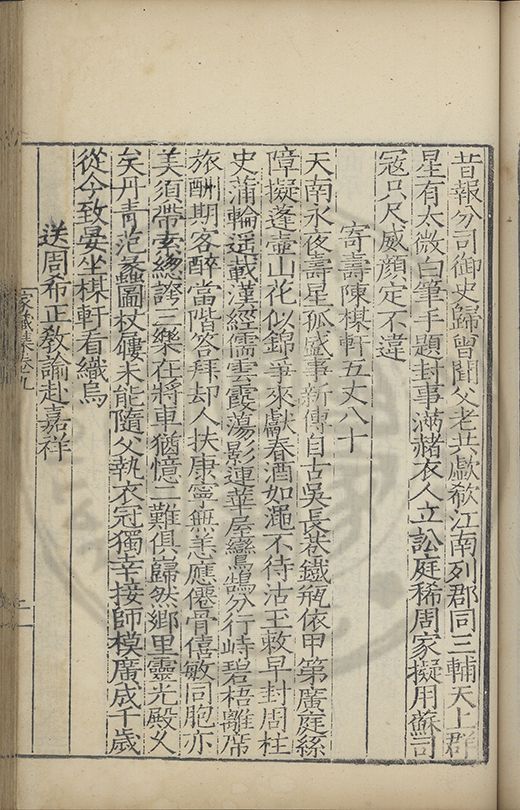 昔報分司御史歸曾聞父老共歔欷江南列郡同三輔天上群
星有太微白筆手題封事滿赭衣人立訟庭稀周家擬用蘇司
寇只尺威顔定不違
寄壽陳楳軒五丈八十
天南永夜壽星孤盛事新傳自古吳長㳟鐵瓶依甲第廣庭絲
障擬蓬壺山花似錦爭來獻春酒如澠不待沽王敕早封周柱
史蒲輪逆載漢經儒雲霞蕩影連華屋鸞鵠分行峙碧梧離席
旅酬期客醉當階答拜却人扶康寧無恙應僊骨僖敏同胞亦
美須帶索緫誇三樂在將車猶憶二難俱歸然鄉里靈光殿乂
矣丹青范蠡圖杖屨未能隨父執衣冠獨幸接師模廣成千歲
從今致晏坐楳軒看織烏
送周希正教諭赴嘉祥
家藏集卷九